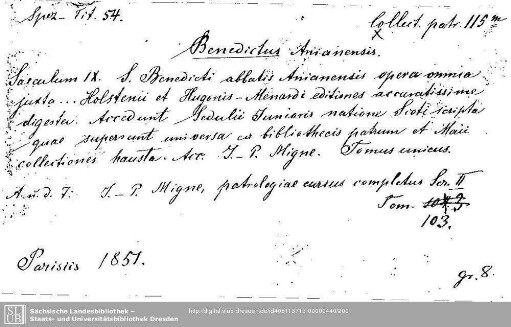 Spez. Tit. 54.
Collect. patr. 115 m
Benedictus Anianensis.
Saeculum IX. S. Benedicti abbatis Anianensis opera omnia
juxta... Holstenii et Hugonis-Menardi editiones accuratissime
digesta. Accedunt Sedulii Junioris natione Scoti scripta
quae supersunt universa ex bibliothecis patrum et Maii
collectiones hausta. Acc. J.-P. Migne. Tomus unicus.
A. u. d. T: J.-P. Migne, patrologiae cursus completus Ser. II
Tom.
103.
Parisiis 1851.
gr. 8.
Sächsische Landesbibliothek –
Staats- und Universitätsbibliothek Dresden